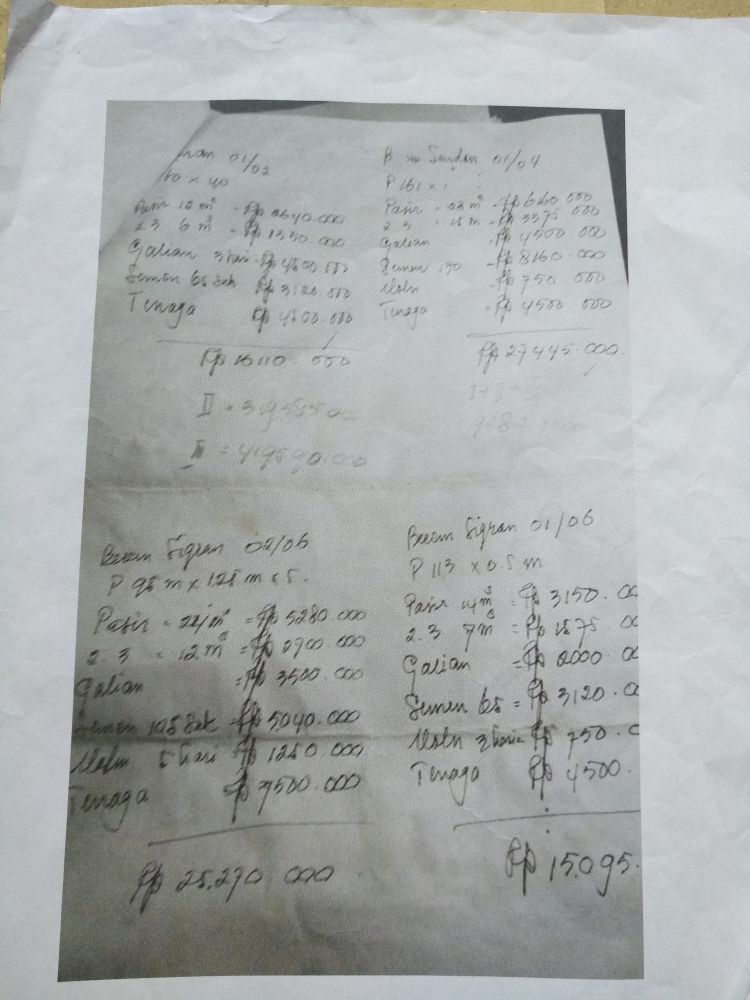 01/02
Pasir 12 m³ = Rp 2640.000
2.3 6 m³ = Rp 1350.000
Galian 3 hari = Rp 4500.000
Semen 65 Sak Rp 3120.000
Tenaga Rp 4500.000
Rp 16110.000
II =
= 419590.000
01/04
P 161 x
Pasir = 28 m³ = Rp 6160.000
2.3 = 15 m = Rp 3375.000
Galian = Rp 4500.000
Semen 170 = Rp 8160.000
Moln = Rp 750.000
Tenaga = Rp 4500.000
Rp 27445.000
Sigran 02/06
P 95 m x 1.25 m x 5.
Pasir = 24 m³ = Rp 5280.000
2.3 = 12 m³ = Rp 2700.000
Galian = Rp 3500.000
Semen 105 Sak = Rp 5040.000
Molm 5 hari Rp 1250.000
Tenaga Rp 7500.000
Rp 25.270.000
Sigran 01/06
P 113 x 0.5 m
Pasir 14 m³ = Rp 3150.00
2.3 7 m³ = Rp 1575.00
Galian = Rp 2000.00
Semen 65 = Rp 3120.0
Moln 3 hari = Rp 750.0
Tenaga Rp 4500.
Rp 15.095.